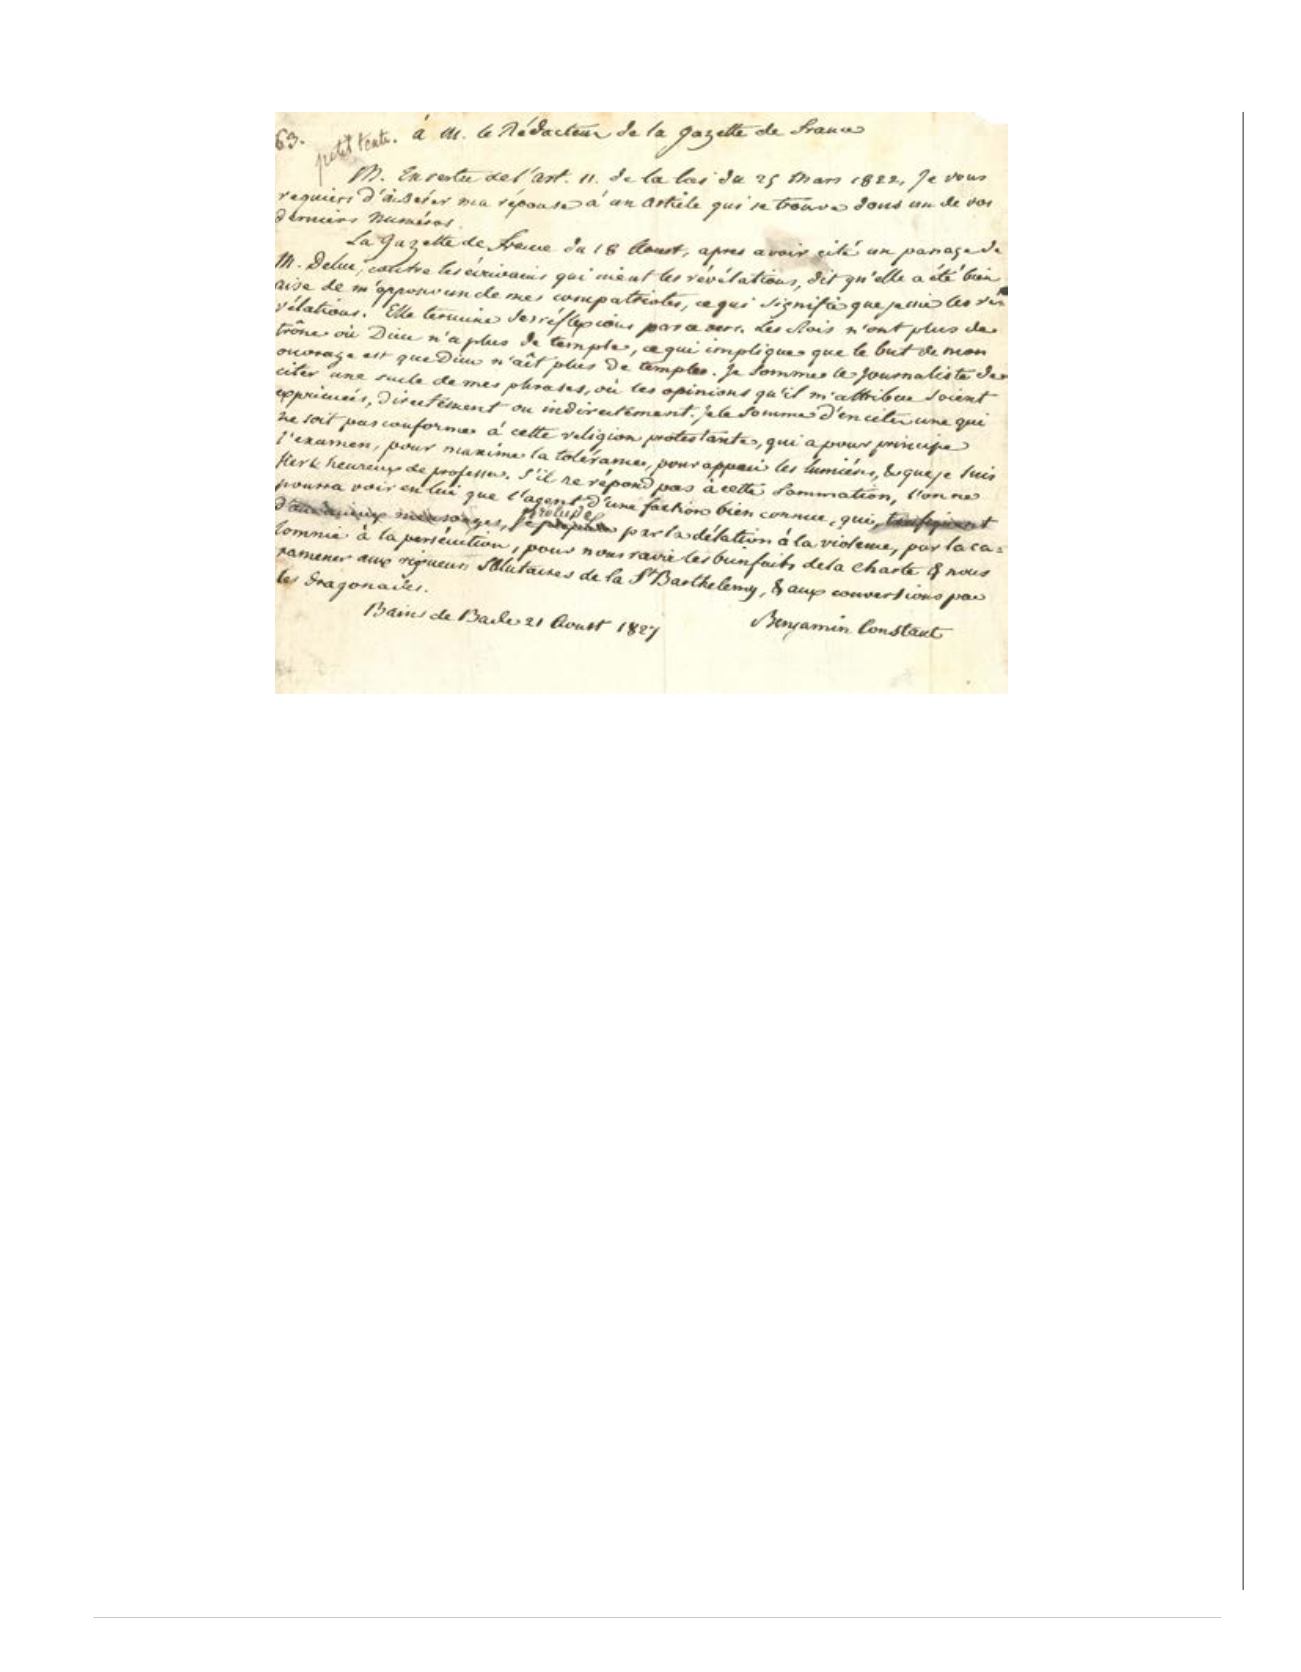 63.
petit texte. à M. le Rédacteur de la gazette de france
M. En vertu de l'art. 11. de la loi du 25 Mars 1822, Je vous
requiers d'insérer ma réponse à un article qui se trouve dans un de vos
derniers Numéros.
La Gazette de France du 18 Aoust, apres avoir cité un passage de
M. Deluc, contre les écrivains qui nient les révélations, dit qu'elle a été bien
aise de m'opposer un de mes compatriotes, ce qui signifie que je nie les ré
vélations. Elle termine ses réflexions par ce vers. Les Rois n'ont plus de
trône où Dieu n'a plus de temple, ce qui implique que le but de mon
ouvrage est que Dieu n'aît plus de temples. Je somme le journaliste de
citer une seule de mes phrases, où les opinions qu'il m'attribue soient
exprimées, directement ou indirectement. Je le somme d'en citer une qui
ne soit pas conforme à cette religion protestante, qui a pour principe
l'examen, pour maxime la tolérance, pour appui les lumières, & que je suis
fier & heureux de professer. S'il ne répond pas à cette sommation, l'on ne
pourra voir en lui que l'agent d'une faction bien connue, qui,
mensonges, prélude par la délation à la violence, par la ca-
lomnie à la persécution, pour nous ravir les bienfaits de la charte & nous
ramener aux rigueurs salutaires de la St Barthelemy, & aux conversions par
les Dragonades.
Bains de Bade 21 Aoust 1827 Benjamin Constant